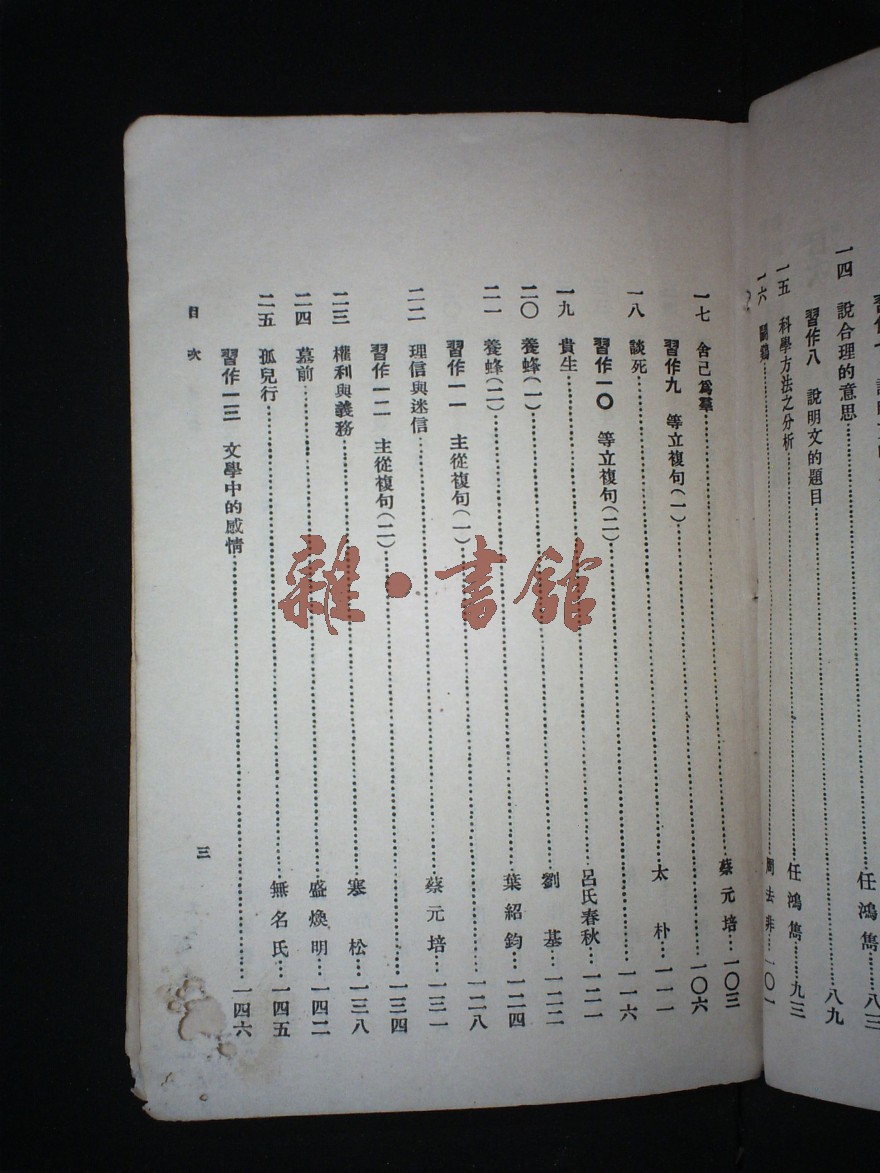 一四 說合理的意思 任鴻雋 八三
習作八 說明文的題目 八九
一五 科學方法之分析 任鴻雋 九三
一六 鬬鷄 周法非 一〇一
一七 舍己爲羣 蔡元培 一〇三
習作九 等立複句(一) 一〇六
一八 談死 太朴 一一一
習作一〇 等立複句(二) 一一六
一九 貴生 呂氏春秋 一二一
二〇 養蜂(一) 劉基 一二二
二一 養蜂(二) 葉紹鈞 一二四
習作一一 主從複句(一) 一二八
二二 理信與迷信 蔡元培 一三一
習作一二 主從複句(二) 一三四
二三 權利與義務 寒松 一三八
二四 墓前 盛煥明 一四二
二五 孤兒行 無名氏 一四五
習作一三 文學中的感情 一四六
目次
三
雜·書館